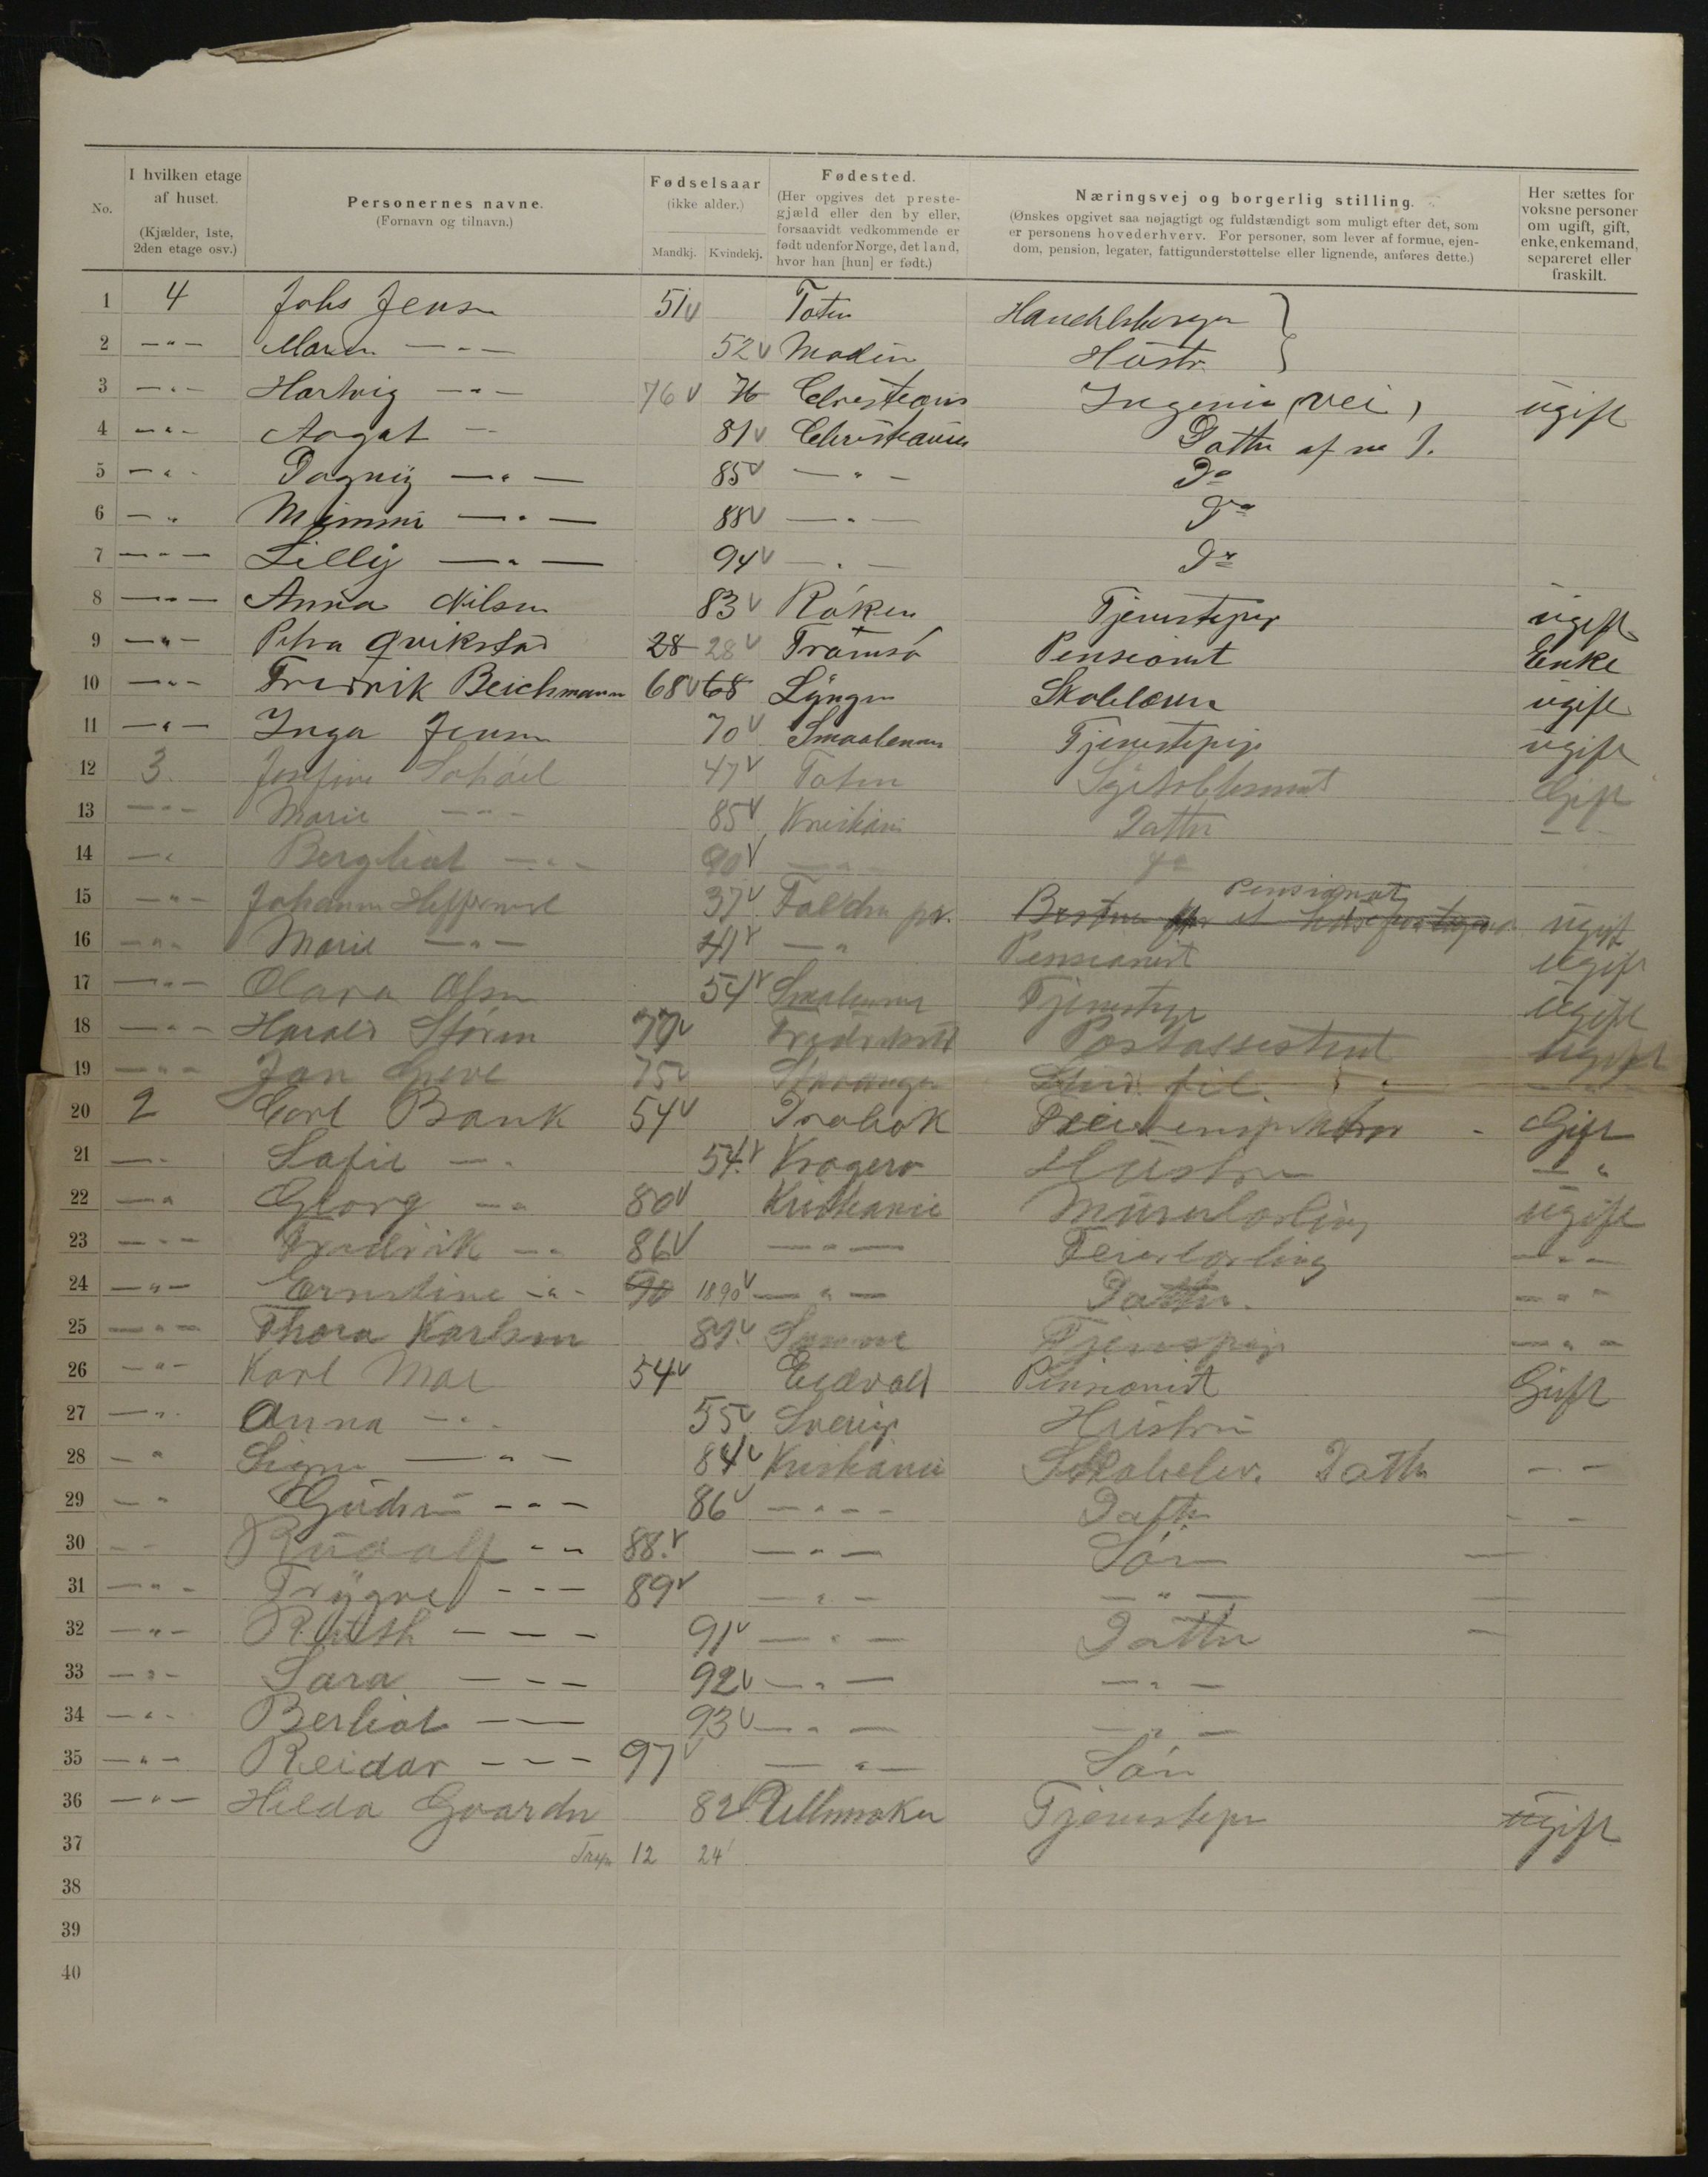 No.
I hvilken etage af huset.
(Kjælder, 1ste, 2den etage osv.)
Personernes navne.
(Fornavn og tilnavn.)
Fødselsaar
(ikke alder.)
Mandkj. Kvindekj.
Fødested.
(Her opgives det prestegjæld eller den by eller, forsaavidt vedkommende er født udenfor Norge, det land, hvor han [hun] er født.)
Næringsvej og borgerlig stilling.
(Ønskes opgivet saa nøjagtigt og fuldstændigt som muligt efter det, som er personens hovederhverv. For personer, som lever af formue, ejendom, pension, legater, fattigunderstøttelse eller lignende, anføres dette.)
Her sættes for voksne personer om ugift, gift, enke, enkemand, separeret eller fraskilt.
1 4 Johs Jensen 51 Toten Handelsborger
2 —"— Maren —"— 52 Modum Hustr
3 —"— Hartvig —"— 76 76 Christiania Ingeniør (vei) ugift
4 —"— Aagot — 81 Christiania Datter af no 1.
5 —"— Dagny —"— 85 —"— Do
6 —"— Mimmi —"— 88 —"— Do
7 —"— Lilly —"— 94 —"— Do
8 —"— Anna Nilsen 83 Röken Tjenstepige ugift
9 —"— Petra Qvikstad 28 28 Tromsö Pensionist Enke
10 —"— Fredrik Beichmann 68 68 Lyngen Skolelærer ugift
11 —"— Inga Jensen 70 Smaalenene Tjenestepige ugift
12 3. Josefine 47 Toten Gift
13 —"— Marie —"— 85 Kristiania Datter —"—
14 —"— Bergliot —"— 90 —"— do
15 —"— Johanne 37 Folden Pensionist ugift
16 —"— Marie —"— 41 —"— Pensionist ugift
17 —"— Olava Olsen 54 Smalenene Tjenestepige ugift
18 —"— Harald Storm 77 Fredrikstad Postassistent ugift
19 —"— Jan Greve 75 Stavanger Stud. fil. —"—
20 2 Carl Bank 54 Drøbak Gift
21 —"— Sofie —"— 54. Kragerø Hustru —"
22 —"— Georg —"— 80 Kristiania Murerlærling ugift
23 —"— Fredrik —"— 86 —"— Feierlærling —"—
24 —"— Ernstine —"— 90 1890 —"— Datter. —"—
25 —"— Thora Karlsen 81. Tjenespige —"—
26 —"— Karl Moe 54 Eidsvold Pensionist Gift
27 —"— Anna —"— 55 Sverige Hustru
28 —"— Signe —"— 84 Kristiania Skoleelev. Datter —"—
29 —"— Gudrun —"— 86 —"— Datter — —
30 —"— Rudolf —"— 88. —"— Sön —
31 —"— Trygve —"— 89 —"— —"— —
32 —"— Ruth — — — 91 —"— Datter —
33 —"— Sara — — — 92 —"— —"—
34 —"— Berliot — — 93 —"— —"—
35 —"— Reidar — — — 97 —"— Sön
36 —"— Hilda 82 Ullensaker Tjenestepige ugift
37 12 24
38
39
40